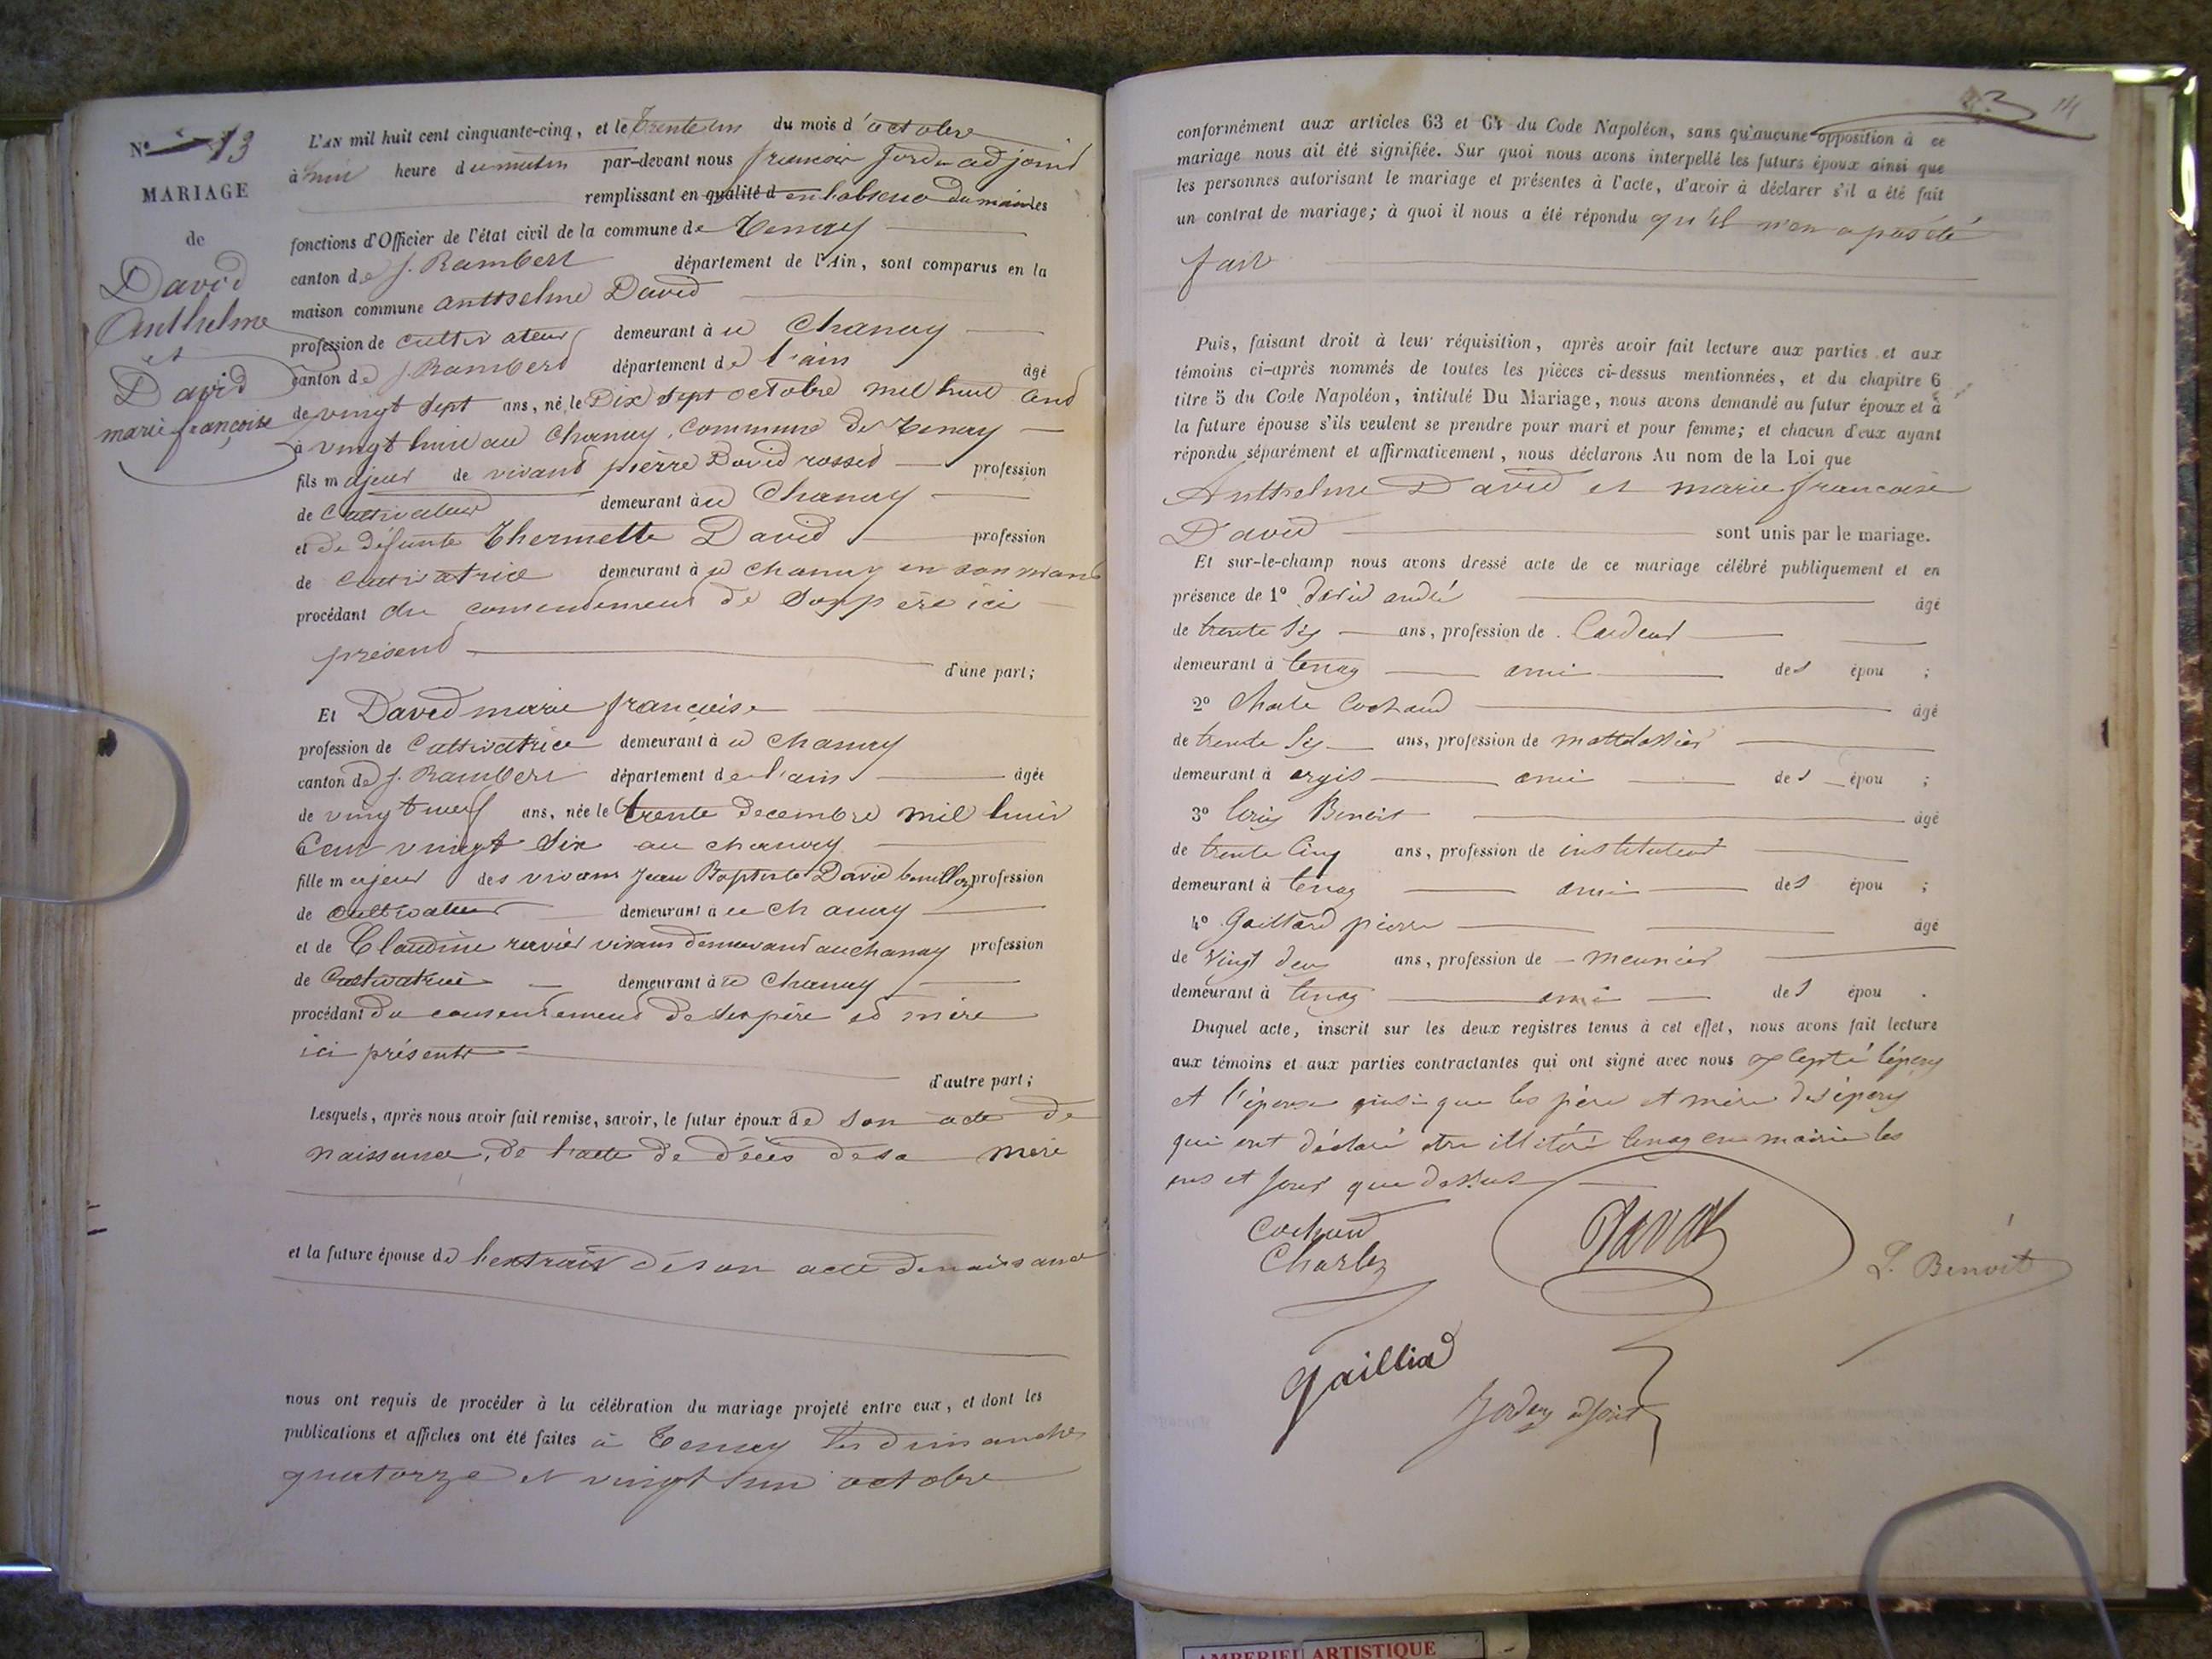 N° 13
MARIAGE
de
David
Anthelme
et
David
marie françoise
L'AN mil huit cent cinquante-cinq, et le trente un du mois d'octobre
à huit heure du matin par-devant nous francois adjoint
remplissant en qualité d en l'absence du maire les
fonctions d'Officier de l'état civil de la commune de Tenay
canton de S. Rambert département de l'Ain, sont comparus en la
maison commune antthelme David
profession de cultivateur demeurant à u Chanay
canton de S. Rambert département de l'ain âgé
de vingt sept ans, né le Dix sept octobre mil huit cent
à vingt huit au Chanay, Commune de Tenay
fils majeur de vivant pierre David rosset profession
de Cultivateur demeurant à u Chanay
et de défunte Thermette David profession
de Cultivatrice demeurant à u chanay en son vivant
procédant du de son père ici
présent d'une part;
Et David marie françoise
profession de Cultivatrice demeurant à u Chanay
canton de S. Rambert département de l'ain âgée
de vingt neuf ans, née le trente decembre mil huit
Cent vingt Six au chanay
fille majeur des vivans Jean Baptiste David profession
de cultivateur demeurant à u Chanay
et de Claudine ravier vivans demeurant au chanay profession
de Cultivatrice demeurant à u Chanay
procédant du consentement de ses père et mère
ici présents
d'autre part;
Lesquels, après nous avoir fait remise, savoir, le futur époux de son acte de
naissance, de l'acte de décès de sa mère
et la future épouse de l'extrait de son acte de naissance
nous ont requis de procéder à la célébration du mariage projeté entre eux, et dont les
publications et affiches ont été faites à Tenay les dimanches
quatorze et vingt un octobre
14
conformément aux articles 63 et 64 du Code Napoléon, sans qu'aucune opposition à ce
mariage nous ait été signifiée. Sur quoi nous avons interpellé les futurs époux ainsi que
les personnes autorisant le mariage et présentes à l'acte, d'avoir à déclarer s'il a été fait
un contrat de mariage; à quoi il nous a été répondu qu'il n'en a pas été
fait
Puis, faisant droit à leur réquisition, après avoir fait lecture aux parties et aux
témoins ci-après nommés de toutes les pièces ci-dessus mentionnées, et du chapitre 6
titre 5 du Code Napoléon, intitulé Du Mariage, nous avons demandé au futur époux et à
la future épouse s'ils veulent se prendre pour mari et pour femme; et chacun d'eux ayant
répondu séparément et affirmativement, nous déclarons Au nom de la Loi que
Antthelme David et marie francoise
David sont unis par le mariage.
Et sur-le-champ nous avons dressé acte de ce mariage célébré publiquement et en
présence de 1° David andré âgé
de trente six ans, profession de Cardeur
demeurant à tenay ami des épou ;
2° Charle Cochand âgé
de trente six ans, profession de mattelassier
demeurant à argis ami des épou ;
3° Louis Benoit âgé
de trente cinq ans, profession de instituteur
demeurant à tenay ami des épou ;
4° Gaillard pierre âgé
de vingt deux ans, profession de meunier
demeurant à tenay ami des épou .
Duquel acte, inscrit sur les deux registres tenus à cet effet, nous avons fait lecture
aux témoins et aux parties contractantes qui ont signé avec nous excepté l'époux
et l'épouse ainsi que les père et mère des époux
qui ont déclaré être illitéré tenay en mairie les
ans et jour que dessus
Cochand
Charles
David
L. Benoit
gaillia
adjoint
AMBERIEU ARTISTIQUE